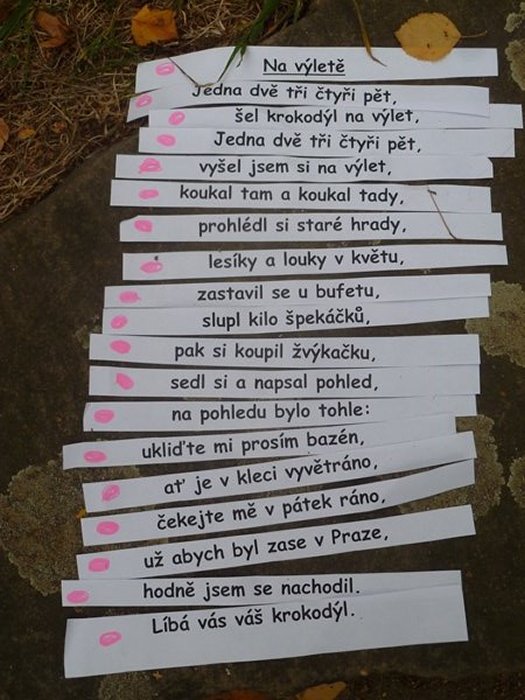 Na výletě
Jedna dvě tři čtyři pět,
šel krokodýl na výlet,
Jedna dvě tři čtyři pět,
vyšel jsem si na výlet,
koukal tam a koukal tady,
prohlédl si staré hrady,
lesíky a louky v květu,
zastavil se u bufetu,
slupl kilo špekáčků,
pak si koupil žvýkačku,
sedl si a napsal pohled,
na pohledu bylo tohle:
ukliďte mi prosím bazén,
ať je v kleci vyvětráno,
čekejte mě v pátek ráno,
už abych byl zase v Praze,
hodně jsem se nachodil.
Líbá vás váš krokodýl.